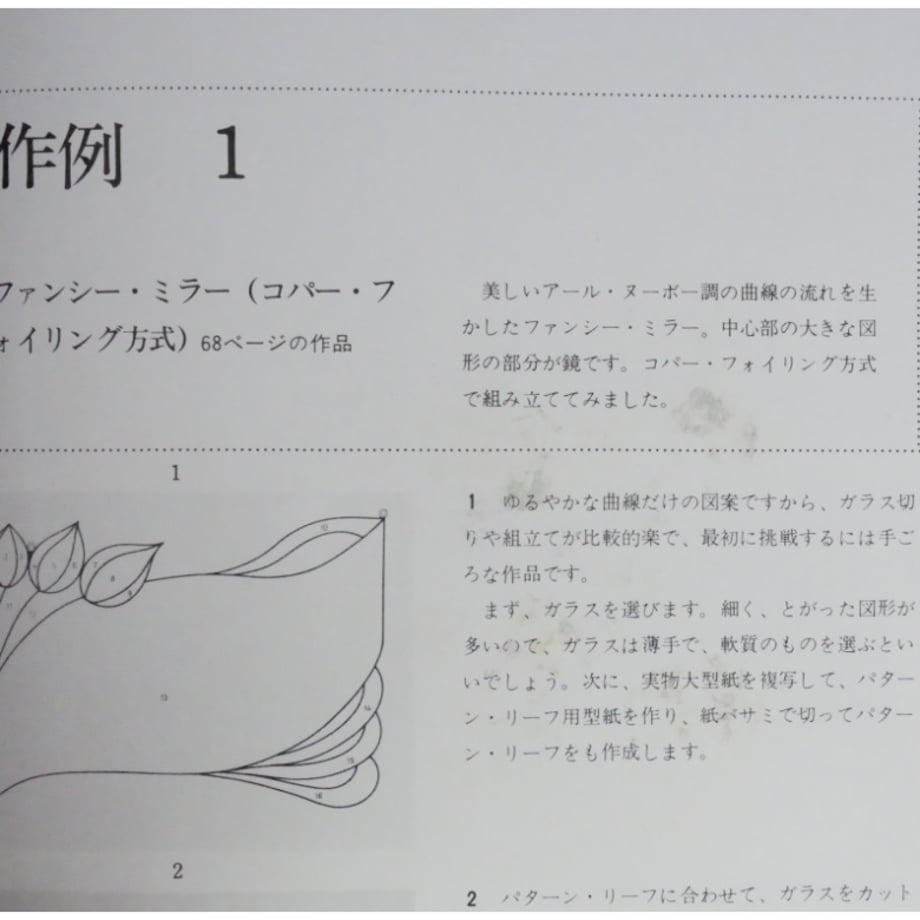 作例 1
ファンシー・ミラー（コパー・フ
ォイリング方式）68ページの作品
美しいアール・ヌーボー調の曲線の流れを生
かしたファンシー・ミラー。中心部の大きな図
形の部分が鏡です。コパー・フォイリング方式
で組み立ててみました。
1
10
7
8
9
13
14
15
16
1 ゆるやかな曲線だけの図案ですから、ガラス切
りや組立てが比較的楽で、最初に挑戦するには手ご
ろな作品です。
まず、ガラスを選びます。細く、とがった図形が
多いので、ガラスは薄手で、軟質のものを選ぶとい
いでしょう。次に、実物大型紙を複写して、パター
ン・リーフ用型紙を作り、紙バサミで切ってパター
ン・リーフをも作成します。
2
2 パターン・リーフに合わせて、ガラスをカット